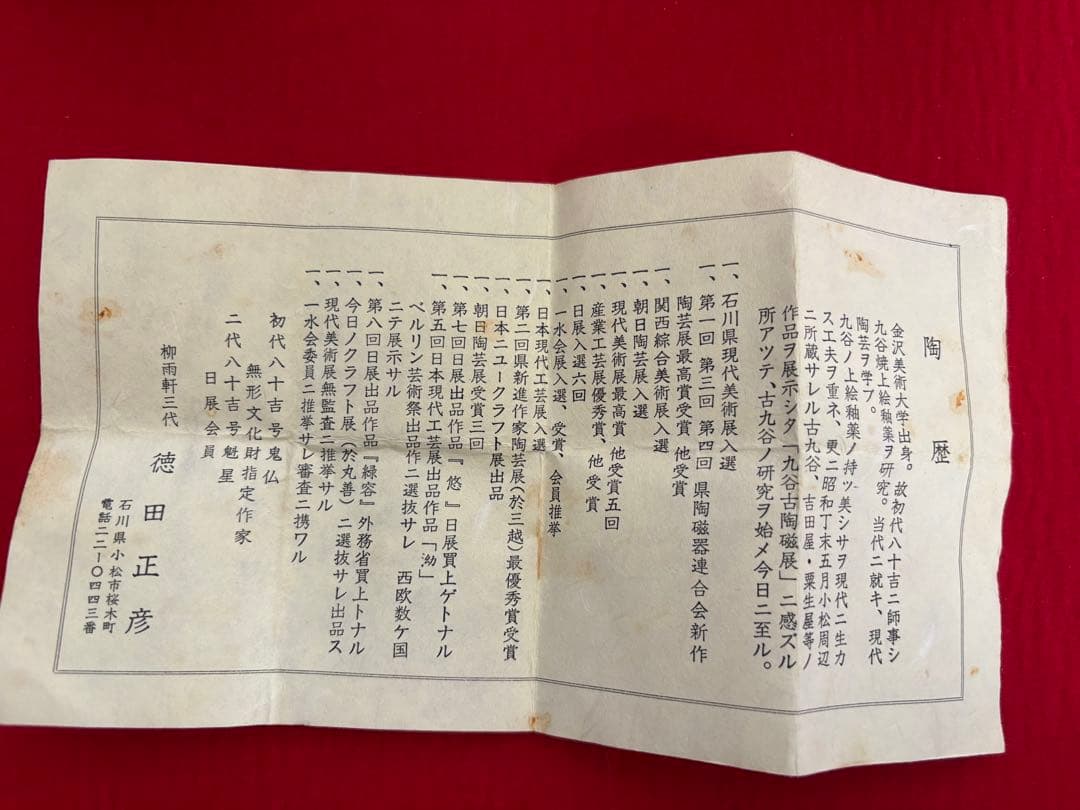 陶歴
金沢美術大学出身。故初代八十吉ニ師事シ
九谷焼上絵釉薬ヲ研究。当代ニ就キ、現代
陶芸ヲ学フ。
九谷ノ上絵釉薬ノ持ッ美シサヲ現代ニ生カ
ス工夫ヲ重ネ、更ニ昭和丁末五月小松周辺
ニ所蔵サレル古九谷、吉田屋・粟生屋等ノ
作品ヲ展示シタ「九谷古陶磁展」ニ感ズル
所アツテ、古九谷ノ研究ヲ始メ今日ニ至ル。
一、石川県現代美術展入選
一、第一回 第三回 第四回 県陶磁器連合会新作
陶芸展最高賞受賞 他受賞
一、関西綜合美術展入選
一、朝日陶芸展入選
一、現代美術展最高賞 他受賞五回
一、産業工芸展優秀賞、他受賞
一、日展入選六回
一、一水会展入選、受賞、会員推挙
一、日本現代工芸展入選
一、第二回県新進作家陶芸展(於三越)最優秀賞受賞
一、日本ニユークラフト展出品
一、朝日陶芸展受賞三回
一、第七回日展出品作品『悠』日展買上ゲトナル
一、第五回日本現代工芸展出品作品「泑」
ベルリン芸術祭出品作ニ選抜サレ 西欧数ケ国
ニテ展示サル
一、第八回日展出品作品『緑容』外務省買上トナル
一、今日ノクラフト展(於丸善)ニ選抜サレ出品ス
一、現代美術展無監査ニ推挙サル
一、一水会委員ニ推挙サレ審査ニ携ワル
初代八十吉号鬼仏
無形文化財指定作家
二代八十吉号魁星
日展会員
柳雨軒三代
徳田正彦
石川県小松市桜木町
電話二二-〇四四三番